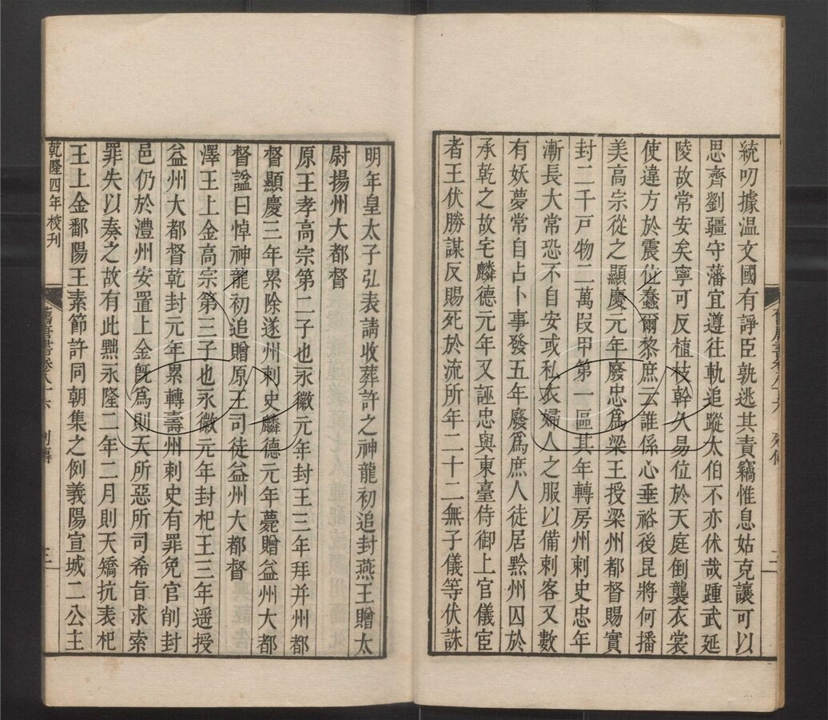 統叨據温文國有諍臣孰逃其責竊惟息姑克讓可以
思齊劉疆守藩宜遵往軌追蹤太伯不亦休哉踵武延
陵故常安矣寧可反植枝幹久易位於天庭倒襲衣裳
使違方於震位蠢爾黎庶云誰係心垂裕後昆將何播
美高宗從之顯慶元年廢忠爲梁王授梁州都督賜實
封二千戸物二萬段甲第一區其年轉房州刺史忠年
漸長大常恐不自安或私衣婦人之服以備刺客又數
有妖夢常自占卜事發五年廢爲庶人徒居黔州囚於
承乾之故宅麟德元年又誣忠與東臺侍御上官儀宦
者王伏勝謀反賜死於流所年二十二無子儀等伏誅
明年皇太子弘表請收葬許之神龍初追封燕王贈太
尉揚州大都督
原王孝高宗第二子也永徽元年封王三年拜并州都
督顯慶三年累除遂州刺史麟德元年薨贈益州大都
督諡曰悼神龍初追贈原王司徒益州大都督
澤王上金高宗第三子也永徽元年封杞王三年遥授
益州大都督乾封元年累轉壽州刺史有罪免官削封
邑仍於澧州安置上金旣爲則天所惡所司希旨求索
罪失以奏之故有此黜永隆二年二月則天矯抗表杞
王上金鄱陽王素節許同朝集之例義陽宣城二公主
乾隆四年校刊
舊唐書卷八十六 列傳
三